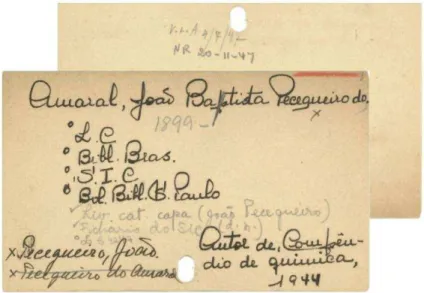 V. L. A 4/7/42
NR 20-11-47
Amaral, João Baptista Pecegueiro do.
1899 -
x
L. C
Bibl. Bras.
S. I. C
Bol. Bibl. S. Paulo
Liv. cat. capa (João Pecegueiro)
Fichario do SIC (d. n.)
x Pecegueiro, João.
x Pecegueiro do Amaral
Autor de, Compên-
dio de quimica,
1944